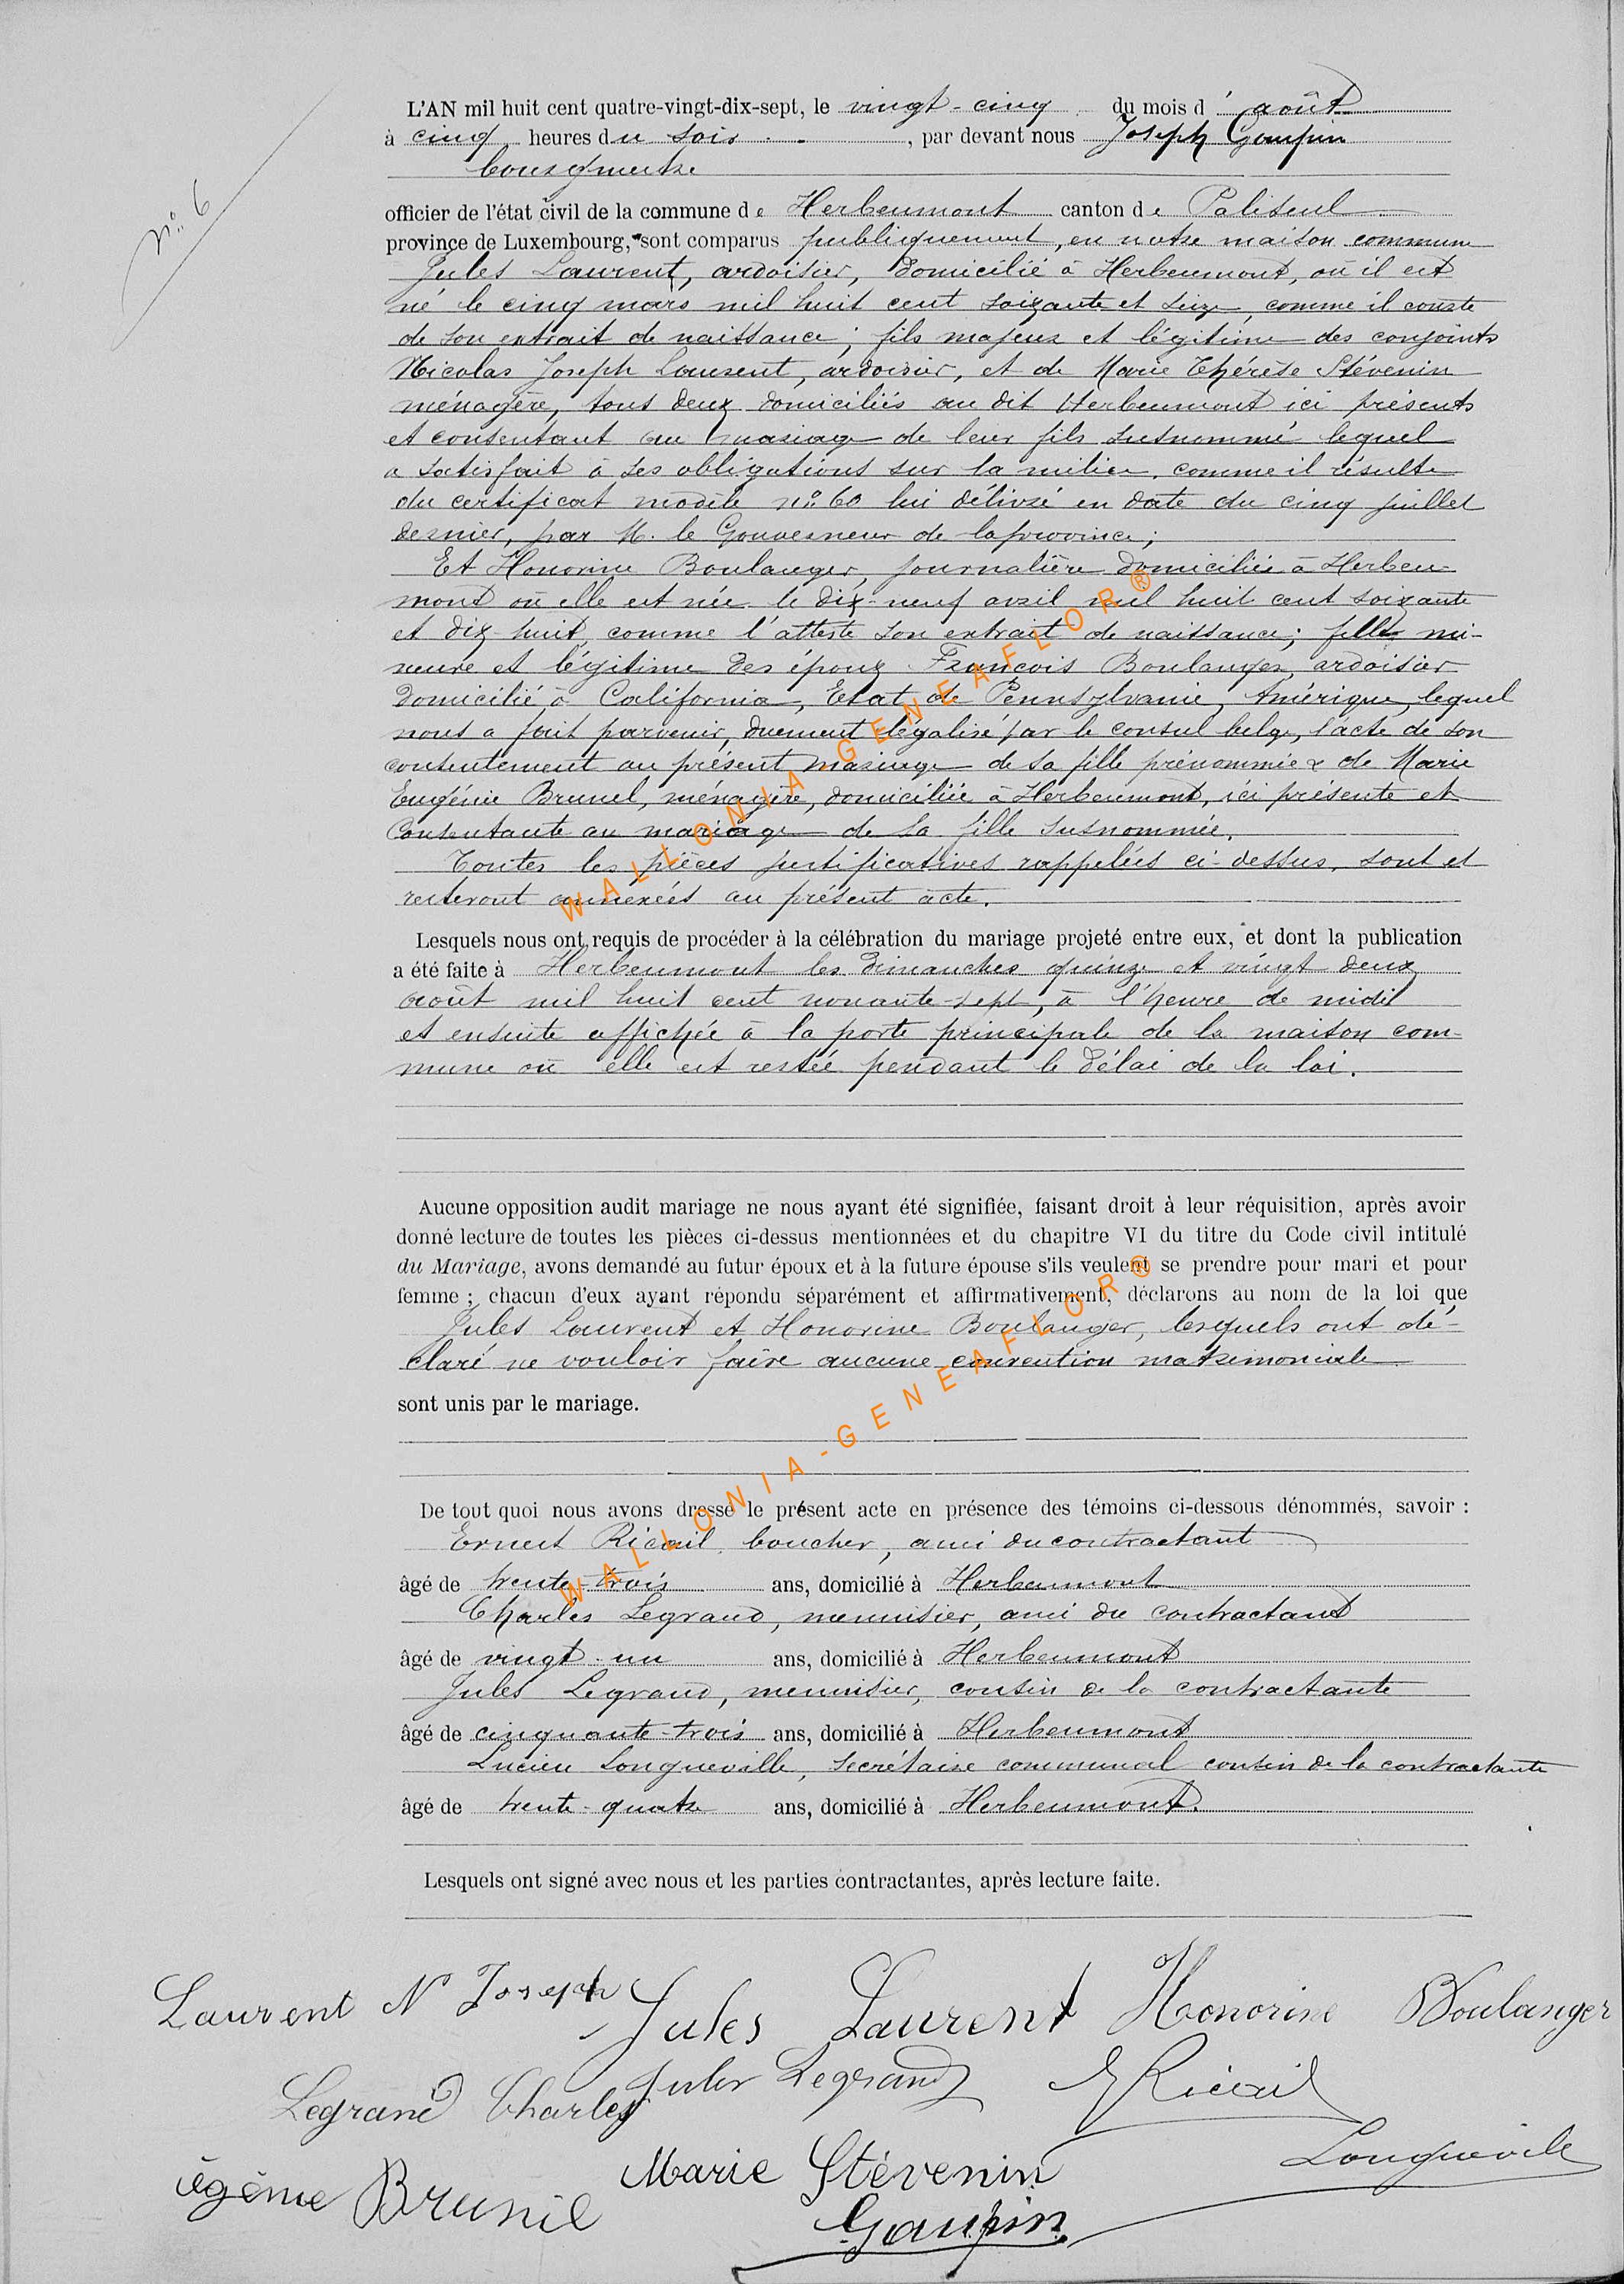 L'AN mil huit cent quatre-vingt-dix-sept, le vingt-cinq du mois d' août
à cinq heures du soir, par devant nous Joseph Goupin
bourgmestre
officier de l'état civil de la commune de Herbeumont canton de Paliseul
province de Luxembourg, sont comparus publiquement, en notre maison commune
N° 6
Jules Laurent, ardoisier, domicilié à Herbeumont, où il est
né le cinq mars mil huit cent soixante et seize, comme il conste
de son extrait de naissance; fils majeur et légitime des conjoints
Nicolas Joseph Laurent, ardoisier, et de Marie Thérèse Stévenin
ménagère, tous deux domiciliés au dit Herbeumont ici présents
et consentant au mariage de leur fils susnommé lequel
a satisfait à ses obligations sur la milice, comme il résulte
du certificat modèle n° 60 lui délivré en date du cinq juillet
dernier, par M. le Gouverneur de la province;
Et Honorine Boulanger, journalière domiciliée à Herbeu-
mont où elle est née le dix-neuf avril mil huit cent soixante
et dix-huit, comme l'atteste son extrait de naissance; fille mi-
neure et légitime des époux François Boulanger, ardoisier
domicilié à California, Etat de Pennsylvanie, Amérique, lequel
nous a fait parvenir, duement légalisé par le consul belge, l'acte de son
consentement au présent mariage de sa fille prénommée & de Marie
Eugénie Brunel, ménagère, domiciliée à Herbeumont, ici présente et
Consentante au mariage de sa fille susnommée.
Toutes les pièces justificatives rappelées ci-dessus, sont et
resteront annexées au présent acte.
WALLONIA-GENEAFLOR®
Lesquels nous ont requis de procéder à la célébration du mariage projeté entre eux, et dont la publication
a été faite à Herbeumont les dimanches quinze et vingt deux
août mil huit cent nonante-sept, à l'heure de midi
et ensuite affichée à la porte principale de la maison com-
mune où elle est restée pendant le délai de la loi.
Aucune opposition audit mariage ne nous ayant été signifiée, faisant droit à leur réquisition, après avoir
donné lecture de toutes les pièces ci-dessus mentionnées et du chapitre VI du titre du Code civil intitulé
du Mariage, avons demandé au futur époux et à la future épouse s'ils veulent se prendre pour mari et pour
femme ; chacun d'eux ayant répondu séparément et affirmativement, déclarons au nom de la loi que
Jules Laurent et Honorine Boulanger, lesquels ont dé-
claré ne vouloir faire aucune convention matrimoniale
sont unis par le mariage.
WALLONIA-GENEAFLOR®
De tout quoi nous avons dressé le présent acte en présence des témoins ci-dessous dénommés, savoir :
Ernest Ricail, boucher, ami du contractant
âgé de trente-trois ans, domicilié à Herbeumont
Charles Legrand, menuisier, ami du contractant
âgé de vingt-un ans, domicilié à Herbeumont
Jules Legrand, menuisier, cousin de la contractante
âgé de cinquante-trois ans, domicilié à Herbeumont
Lucien Longueville, secrétaire communal cousin de la contractante
âgé de trente-quatre ans, domicilié à Herbeumont.
Lesquels ont signé avec nous et les parties contractantes, après lecture faite.
Laurent N Joseph Jules Laurent Honorine Boulanger
Legrand Charles Jules Legrand E Ricail
Brunil Marie Stévenin Longueville
Goupin